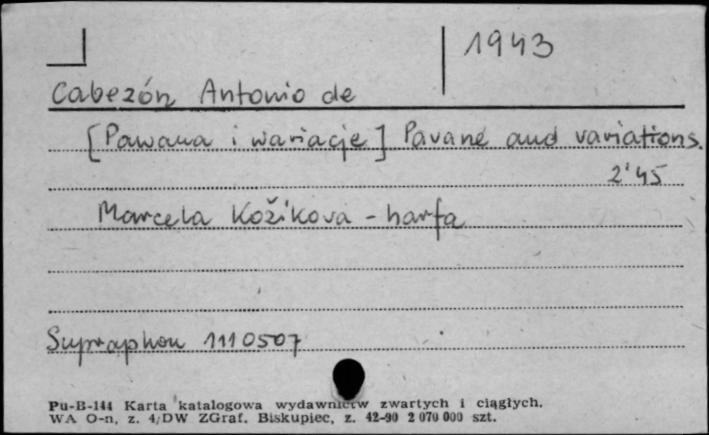 1943
Cabezón Antonio de
[Pawana i wariacje] Pavane and variations.
2'45
Marcela Kožíkova - harfa
Supraphon 1110507
Pu-B-144 Karta katalogowa wydawnictw zwartych i ciągłych.
WA O-n, z. 4/DW ZGraf. Biskupiec, z. 42-90 2 070 000 szt.